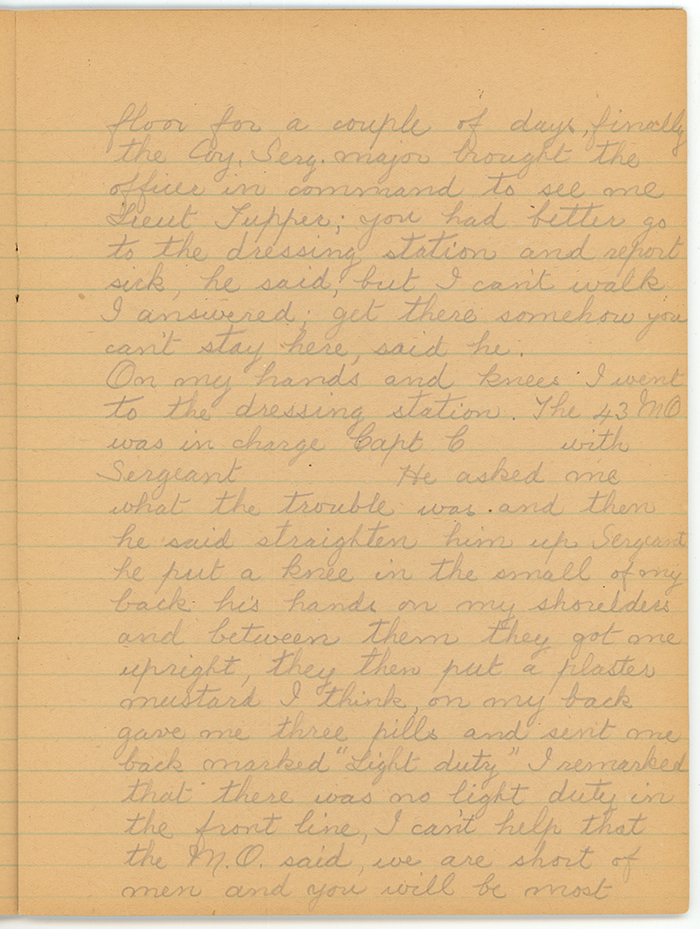 floor for a couple of days, finally
the Coy. Serg. major brought the
officer in command to see me
Lieut Tupper; you had better go
to the dressing station and report
sick, he said; but I can't walk
I answered; get there somehow you
can't stay here, said he.
On my hands and knees I went
to the dressing station. The 43 M.O.
was in charge Capt C with
Sergeant He asked me
what the trouble was and then
he said straighten him up Sergeant
he put a knee in the small of my
back his hands on my shoulders
and between them they got me
upright, they then put a plaster
mustard I think, on my back
gave me three pills and sent me
back marked "Light duty" I remarked
that there was no light duty in
the front line, I can't help that
the M.O. said, we are short of
men and you will be most